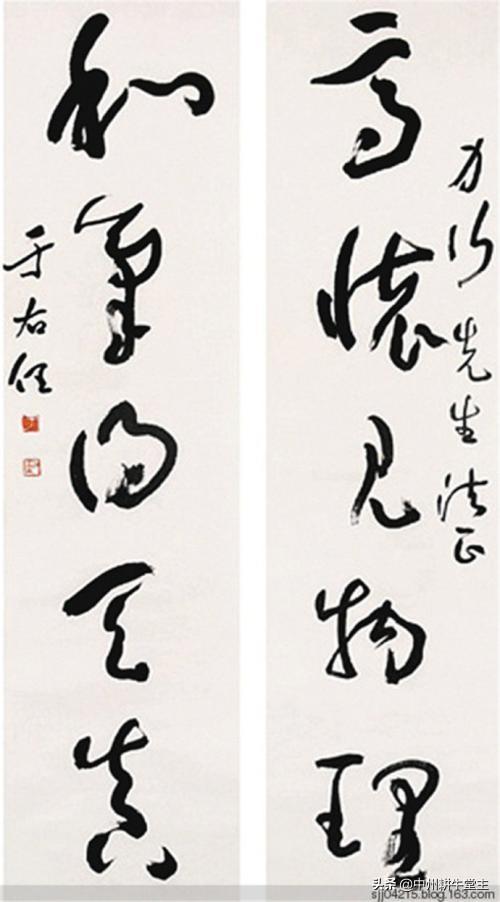 行先生法正
高懷見物理
和氣得天真
于右任
头条 @中州耕牛堂主
sjj04215.blog.163.com